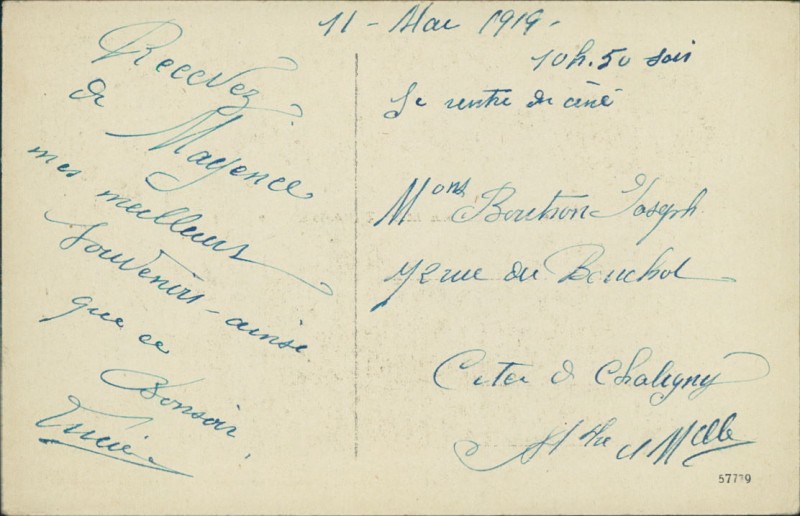 11 - Mai 1919 -
10h.50 soir
Je rentre du ciné
Recevez
de Mayence
mes meilleurs
souvenirs - ainsi
que ce
Bonsoir.
Lucie
Mons Boutron Joseph
72 rue du Bouchot
Cité d Chaligny
Mthe et Mlle
57779